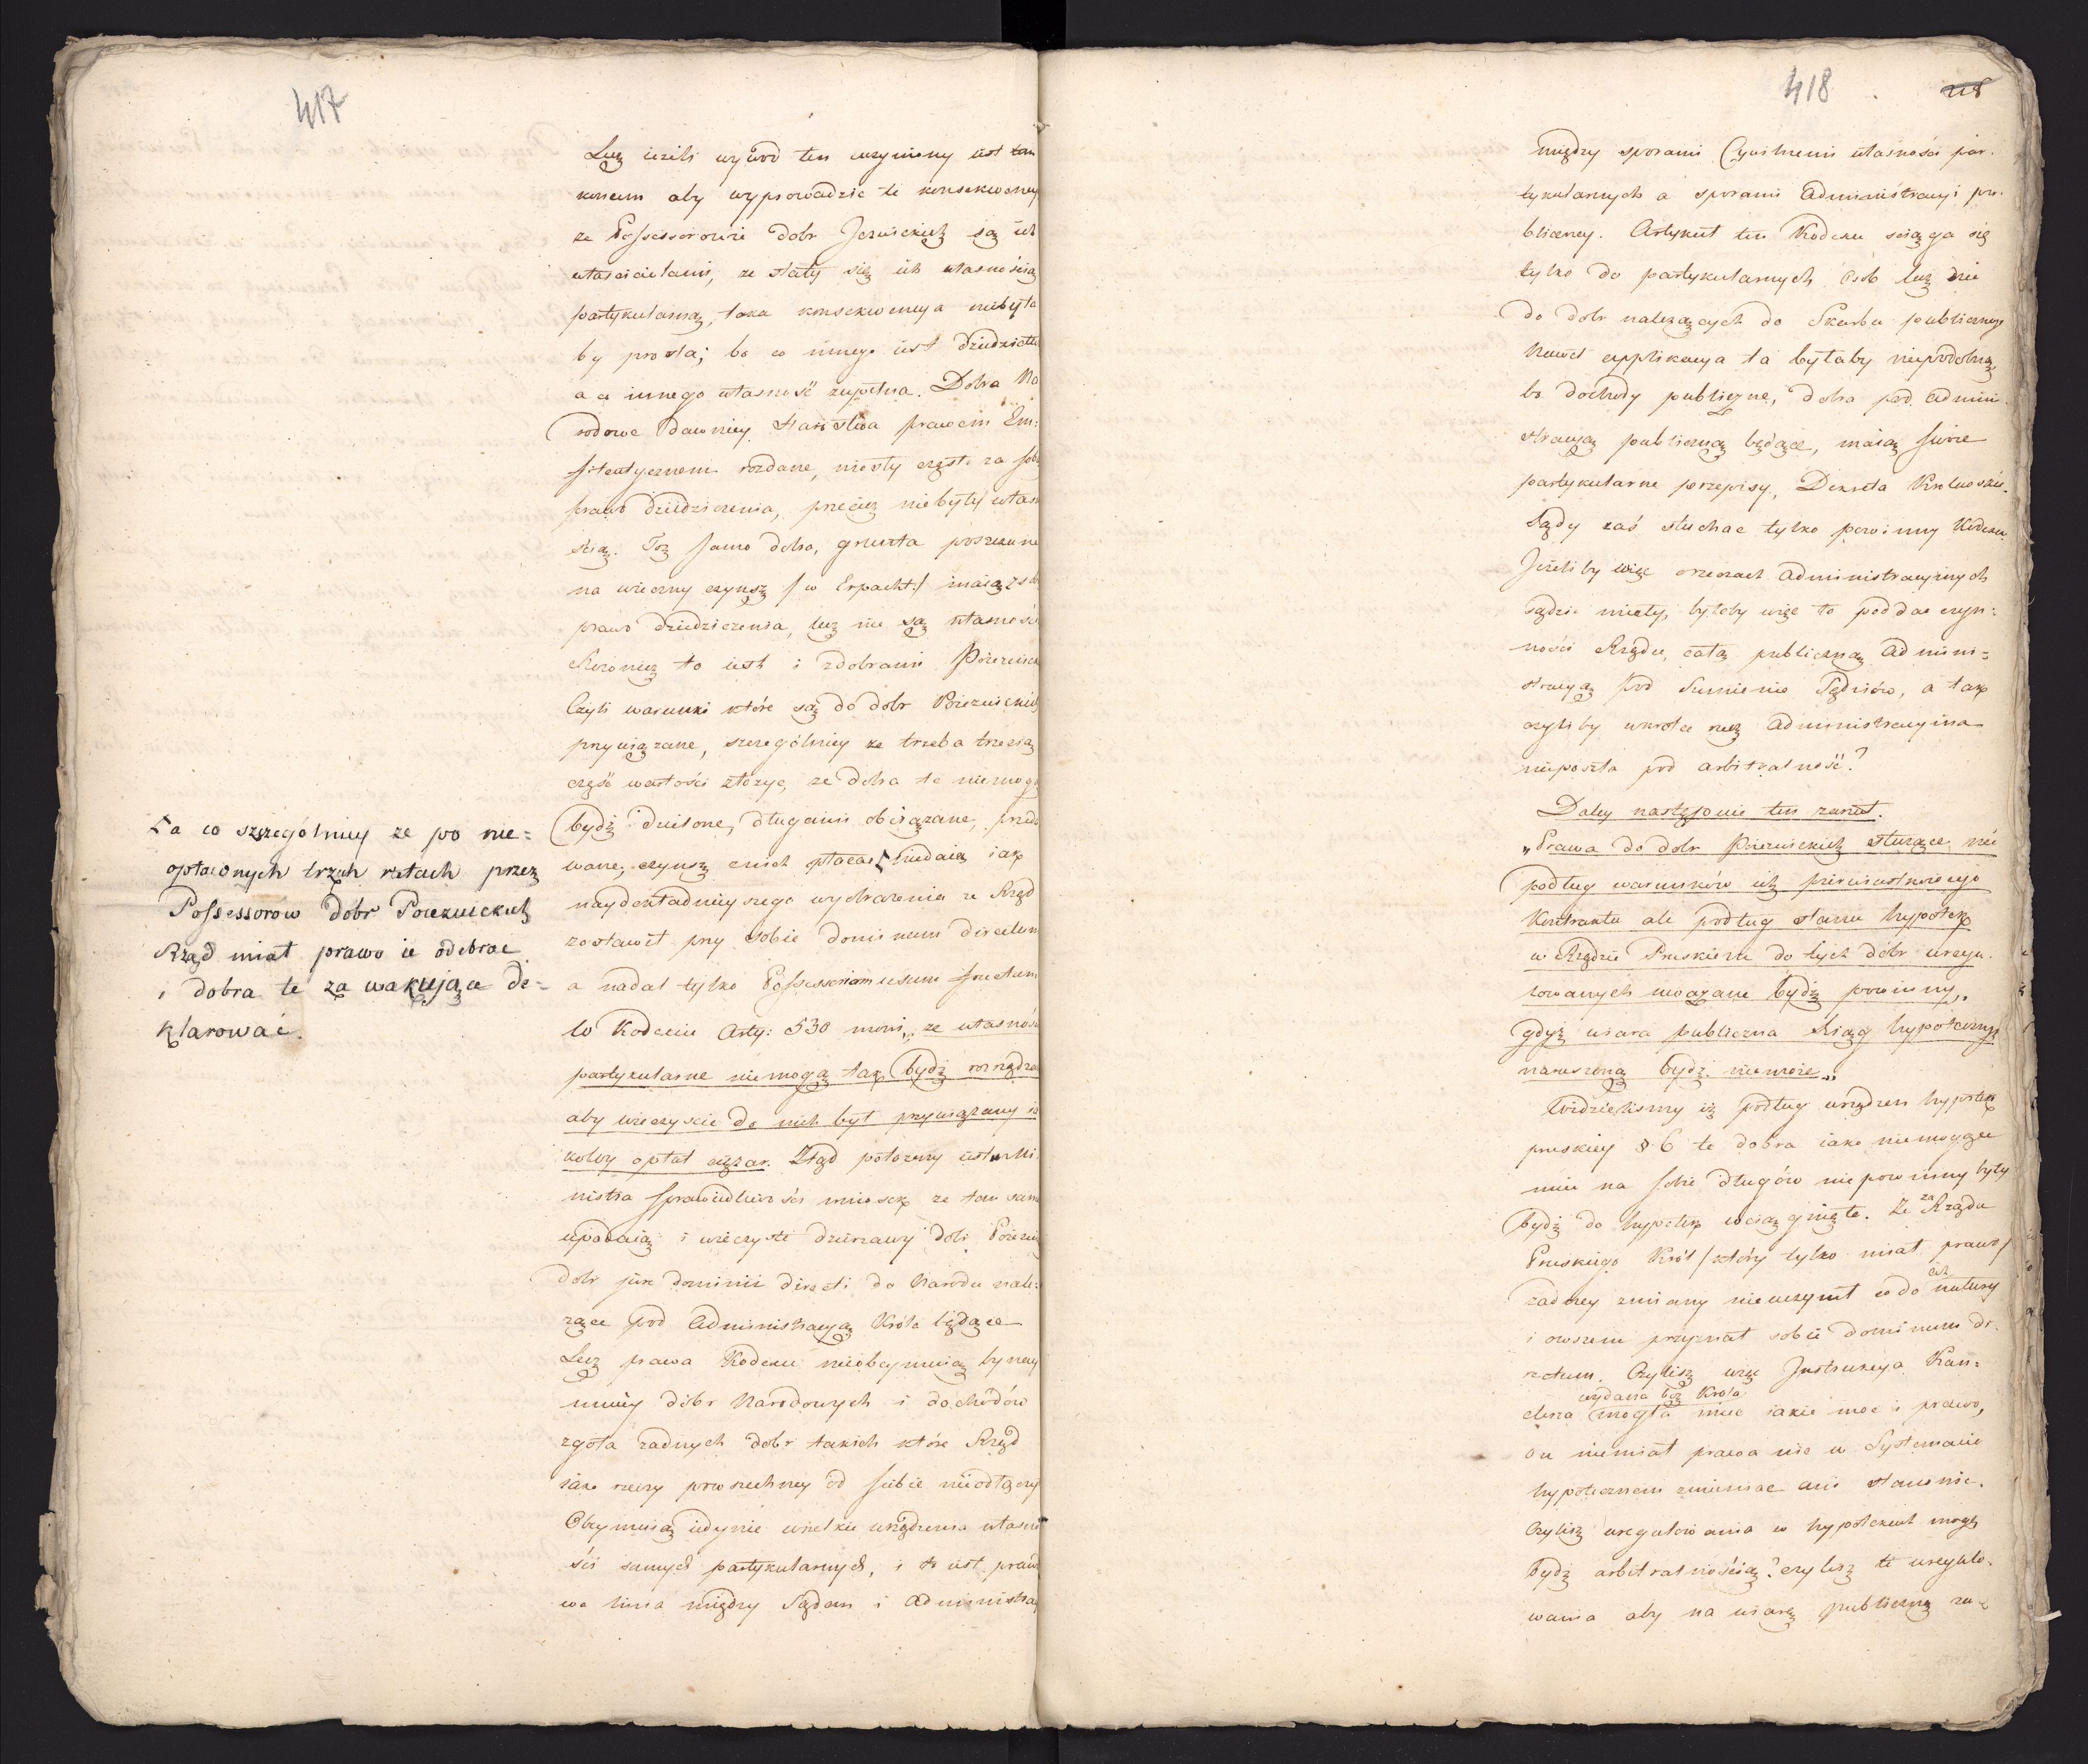 417
Lecz ieżeli wywod ten uczyniony iest tan
koncem aby wyprowadzić te konsekwency
że Possessorowie dobr Jezuickich są ich
własciciełami, ze stały się ich własnością
partykularną, taka konsekwencya niebyła
by prosta; bo co innego iest dziedzictw
a co innego własność zupełna. Dobra Na
rodowe dawniey Starostwa prawem Em:
fiteutycznem rozdane, niosły część za sobą
prawo dziedziczenia, przecież niebyły włas
ścią. Toż samo dobra, grunta poszczune
na wieczny czynsz /w Erpacht:/ maią z s
prawo dziedziczenia, lecz nie są własnośc
Rownież to iest i z dobrami Pojezuick
Czyli warunki które są do dobr Pojezuickich
przywiązane, szczególniey że trzeba trzecią
część wartości złożyć, ze dobra te niemogą
bydź dzielone, długami obciążane, przeda
wane, czynsz z nich płacać, Γ niedaią iak
naydokładnieyszego wyobrażenia ze Rząd
zostawił przy sobie dominium directum
a nadał tylko Possessoriom usum fructum
Γ a co szczególniey ze po nie=
opłaconych trzech ratach przez
Possessorow dobr Poiezuickich
Rząd miał prawo ie odebrac
i dobra te za wakuiące de=
klarować.
W Kodexie Arty: 530 mowi „ze własnośc
partykularne niemogą tak bydź rozrządza
aby wieczyscie do nich był przywiązany ia
kolwy opłat ciężar. Ztąd położony iest w Mi
nistra Sprawiedliwości wniosek ze tem sam
upadaią i wieczyste dzierżawy dobr Poiezui
dobr jure dominii directi do Narodu nale=
żące pod Administracyą Króla będące
Lecz prawa Kodexu nieobeymuią by ney
mniey dóbr Narodowych i dochodów
zgoła żadnych dobr takich które Rząd
iako rzeczy powszechney od siebie nieodłączy
Obeymuią iedynie wszelkie urządzenia własno
ści samych partykularnych, i to iest praw
wa linia między Sądem i Administrac
418
218
między sporami Cywilnemi własności par-
tykularnych a sporami Administracyi pu-
bliczney. Artykuł ten Kodexu sciąga się
tylko do partykularnych osób lecz nie
do dobr należących do Skarbu publicznego
Nawet applikacya ta byłaby niepodobną
bo dochody publiczne, dobra pod admini-
stracyą publiczną będące, maią swoie
partykularne przepisy, Dekreta Krolewskie
Sądy zaś słuchać tylko powinny Kodexu
Jeżeliby więc orzeczach administracyinych
sądzić miały, byłoby więc to poddac czyn=
ności Rządu, całą publiczną Admini=
stracyą pod Sumienie Sędziów, a tak
czyliby wkrotce rzecz administracyina
nieposzła pod arbitralność?
Daley następuie ten zarzut.
„Prawa do dobr Poiezuickich służące, nie
podług warunków ich pierwiastkowego
Kontraktu ale podług stanu hypotek
w Rządzie Pruskiem do tych dóbr uregu-
lowanych uważane bydź powinny,
gdyż wiara publiczna Xiąg hypotecznych
naruszoną bydź niemoże„
Widzielismy iż podług urządzen hypotek
pruskiey § 6 te dobra iako niemogące
mieć na sobie długów niepowinny były
bydź do hypotek wciągnięte. Ze za Rządu
Pruskiego Król /który tylko miał prawo/
żadney zmiany nieuczynił co do ich natury
i owszem przyznał sobie dominium di-
rectum. Czyliż więc Instrukcya Kan=
clerza wydana bez Króla mogła mieć iakie moc i prawo,
on niemiał prawa nic w Systemacie
hypotecznem zmieniac ani stanowić.
Czyliż uregulowania w hypotekach mogą
bydź arbitralnością? czyliż te uregulo-
wania aby na wiarę publiczną za-